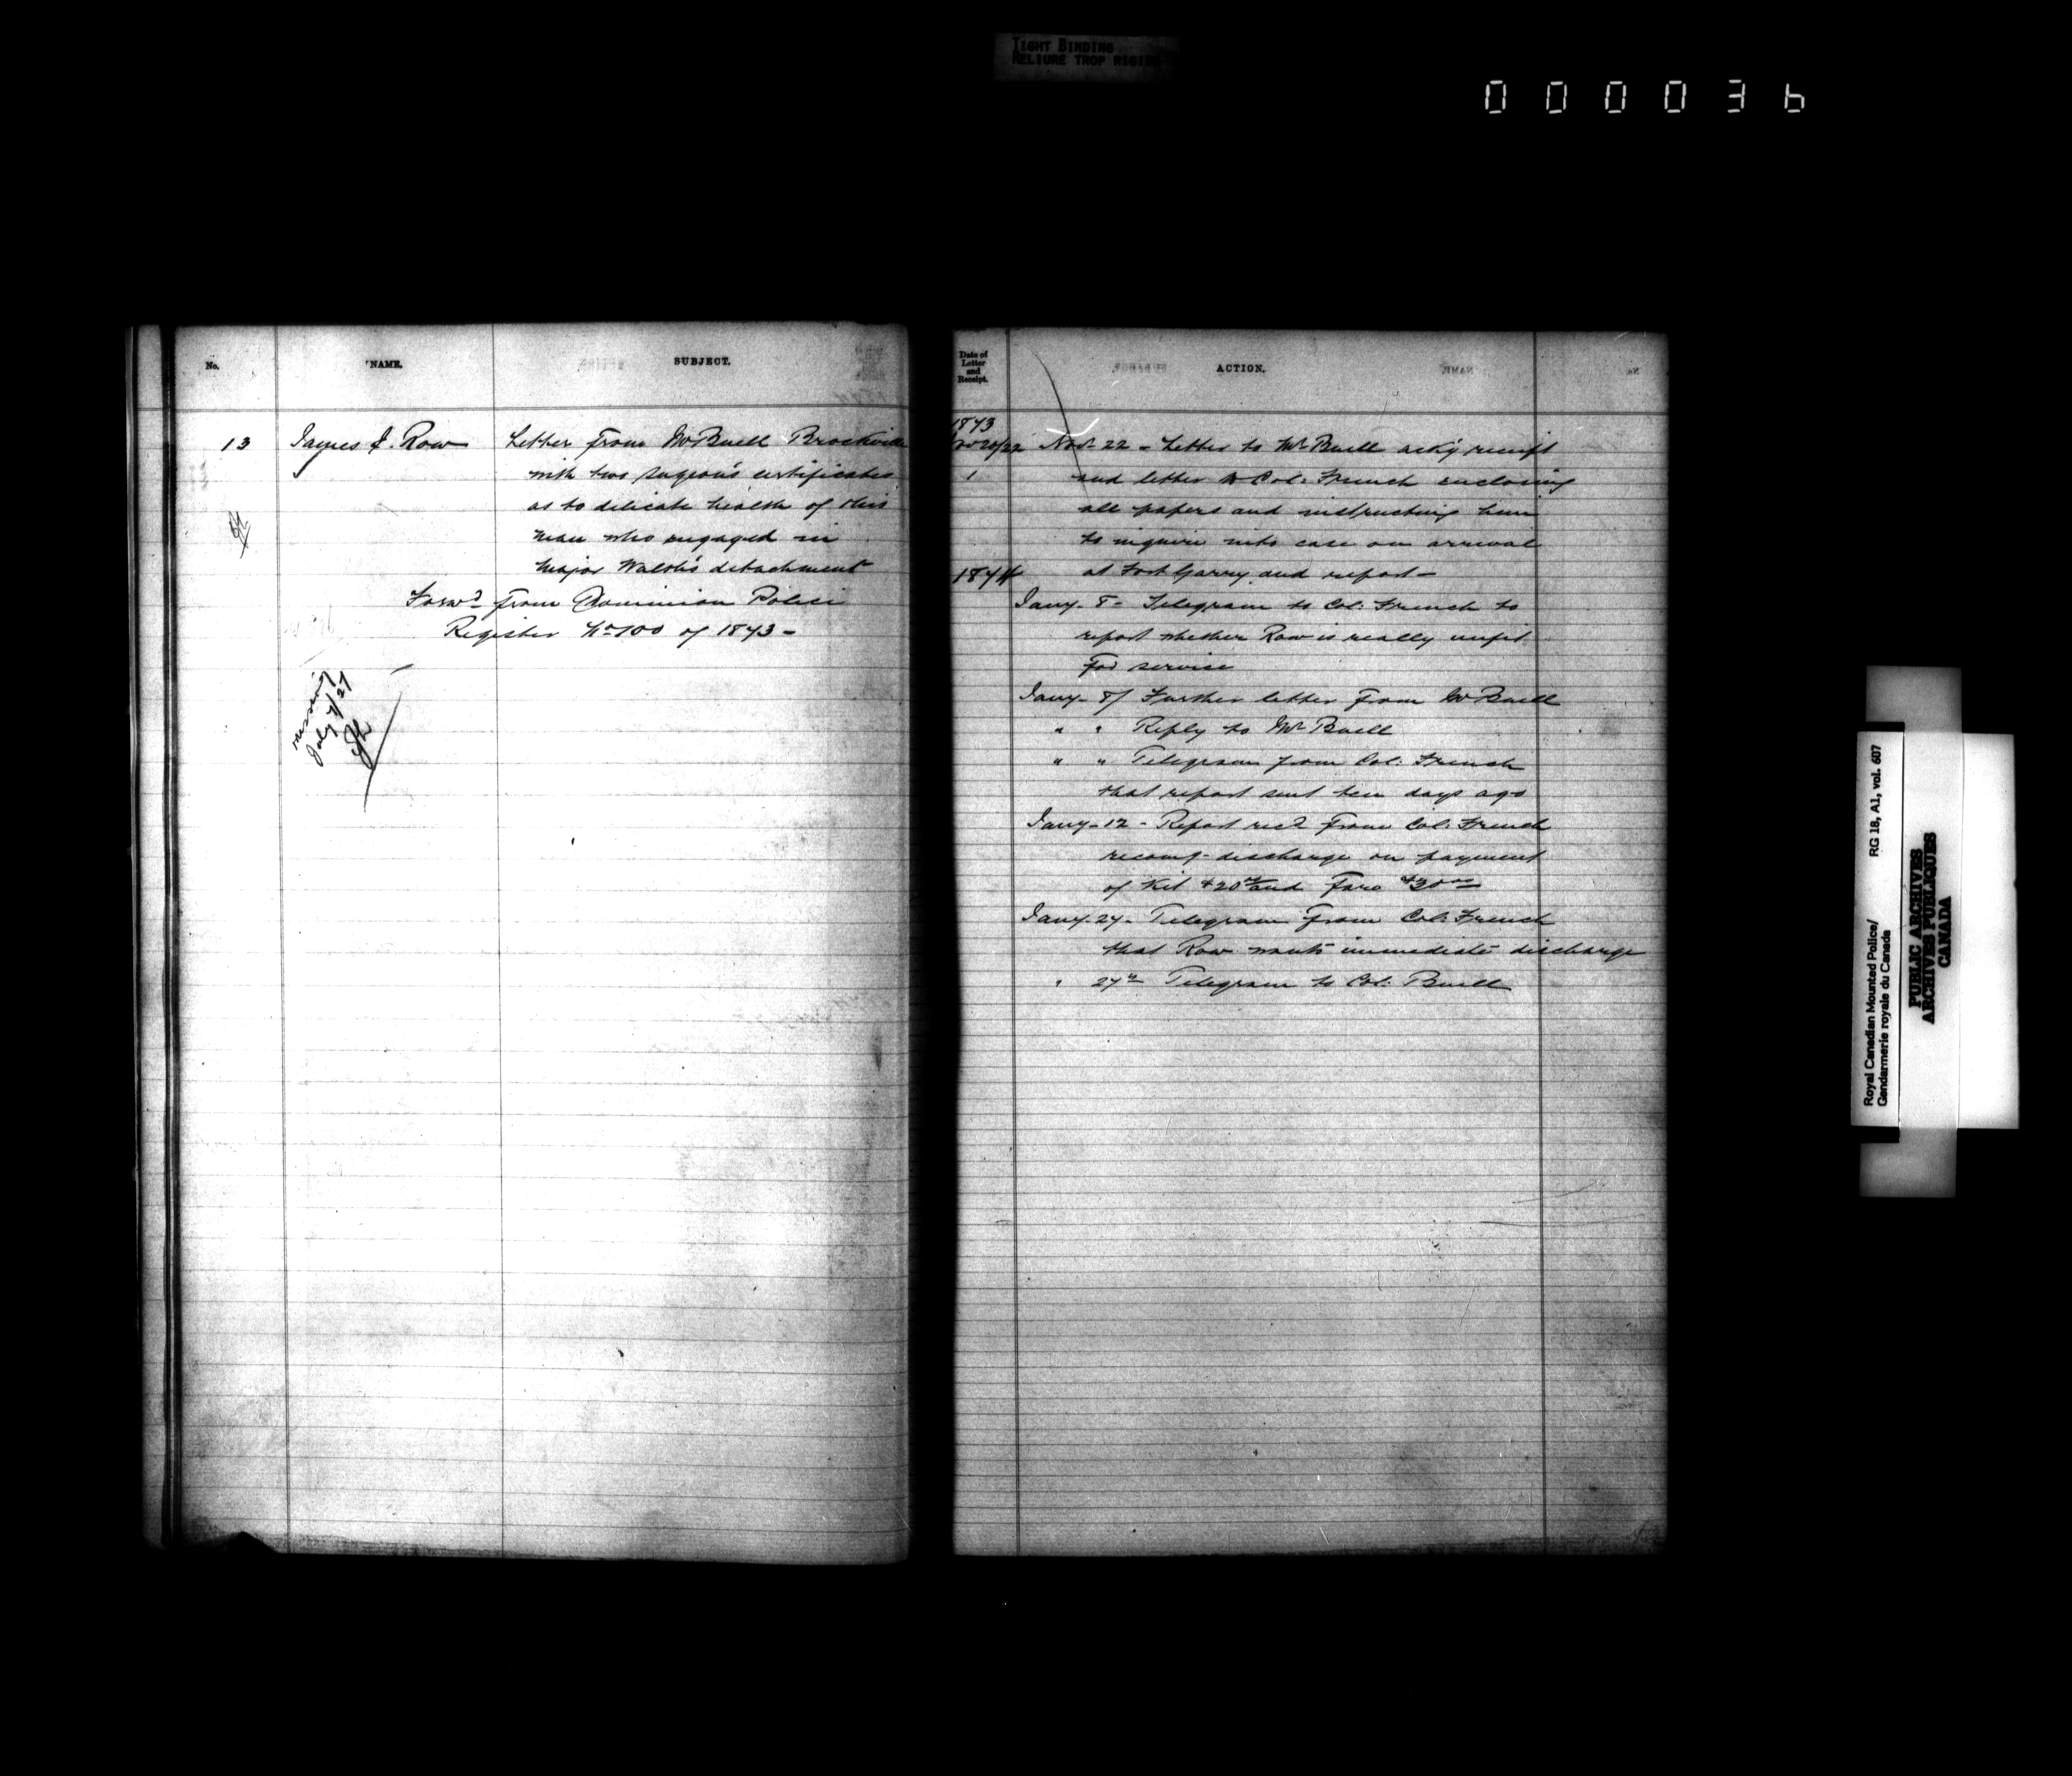 TIGHT BINDING
RELIURE TROP RIGIDE
000036
No. NAME. SUBJECT.
13 James I. Row Letter from Mr Buell Brockville
with two surgeon's certificates
as to delicate health of this
man who engaged in
Major Walsh's detachment
Forwd from Dominion Police
Register No 100 of 1873 -
missing
July 7/27
Date of Letter and Receipt. ACTION.
1873
Nov 20/22 Nov. 22 - Letter to Mr Buell ackg receipt
1 and letter to Col: French enclosing
all papers and instructing him
to inquire into case on arrival
1874 at Fort Garry and report -
Jany - 8 - Telegram to Col: French to
report whether Row is really unfit
for service
Jany - 8/ Further letter from Mr Buell
" " Reply to Mr Buell
" " Telegram from Col: French
that report sent ten days ago
Jany - 12 - Report recd from Col: French
recomg discharge on payment
of Kit $20 and Fare $30
Jany - 27 - Telegram from Col: French
that Row wants immediate discharge
" 27th Telegram to Col: Buell
Royal Canadian Mounted Police/
Gendarmerie royale du Canada
RG 18, A1, vol. 607
PUBLIC ARCHIVES
ARCHIVES PUBLIQUES
CANADA